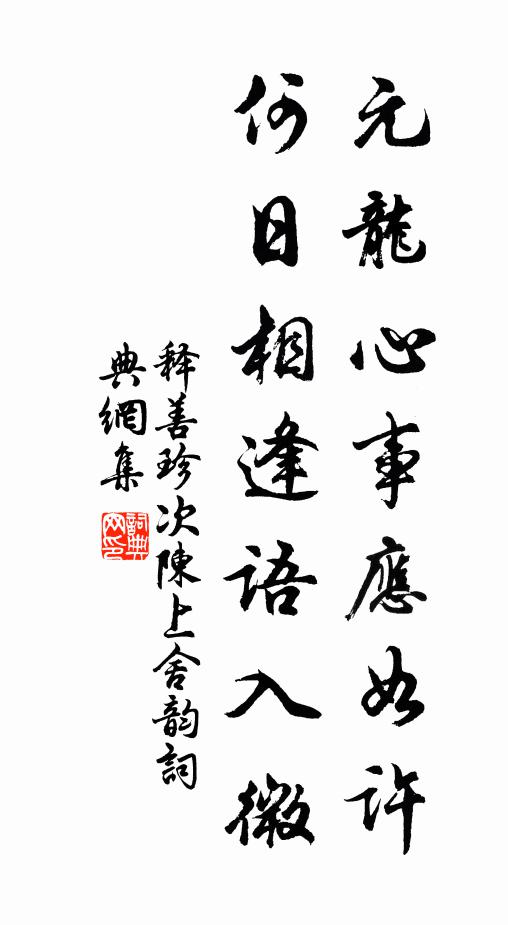 元龍心事應如許
何日相逢語入微
释善珍次陳上舍韵詞
典網集
詞典
网印